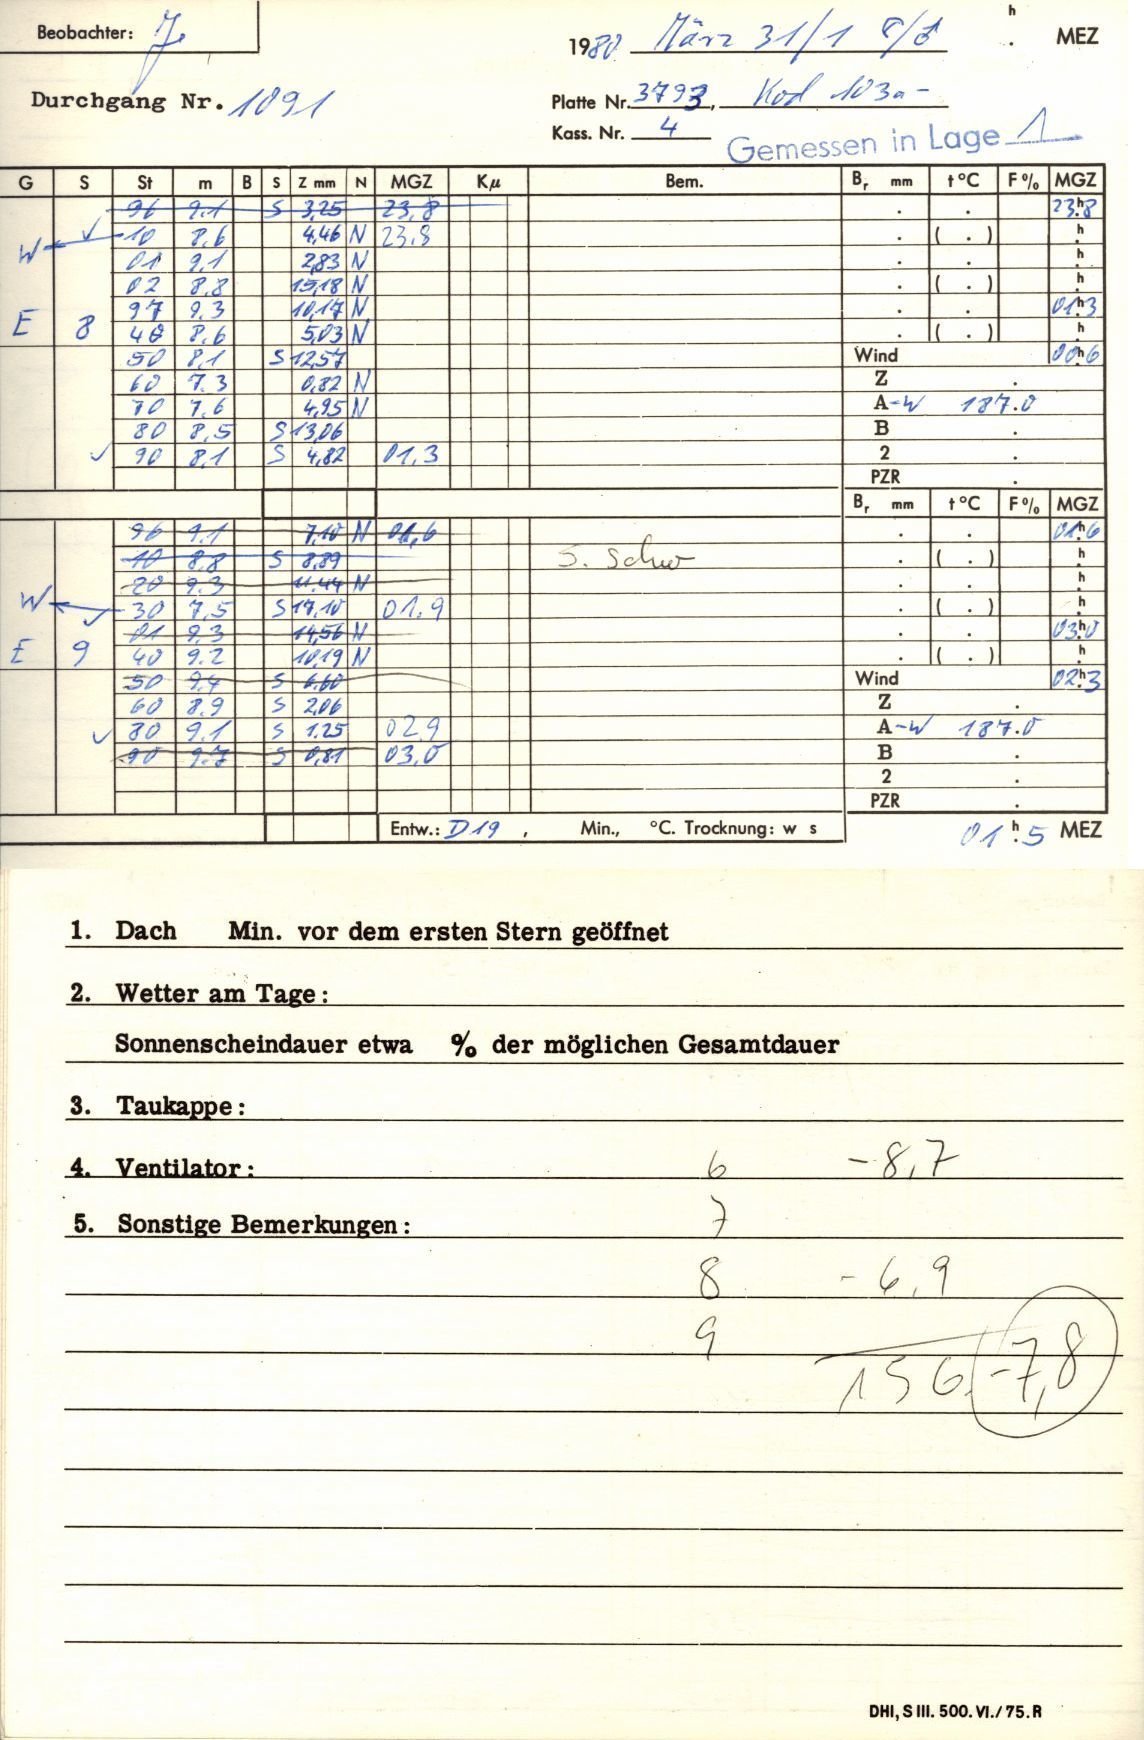 Beobachter: J.
1980 März 31/1 8/8 h . MEZ
Durchgang Nr. 1091
Platte Nr. 3793, Kod 103a-
Kass. Nr. 4
Gemessen in Lage 1
G S St m B S Z mm N MGZ Kμ Bem. Br mm t°C F% MGZ
96 9.1 S 3,25 23,8 . . 23h.8
W 10 8.6 4,46 N 23.8 . ( . ) h.
01 9.1 2,83 N . . h.
02 8.8 15,18 N . ( . ) h.
97 9.3 10,17 N . . 01h.3
E 8 40 8.6 5,03 N . ( . ) h.
50 8.1 S 12,57 Wind 00h.6
60 7.3 0,82 N Z .
70 7.6 4,95 N A-W 187.0
80 8,5 S 13,06 B .
90 8.1 S 4,82 01,3 2 .
PZR .
Br mm t°C F% MGZ
96 9.1 7,10 N 01,6 . . 01h.6
10 8.8 S 8,89 S. Schw . ( . ) h.
20 9.3 11,44 N . . h.
W 30 7.5 S 17,10 01.9 . ( . ) h.
01 9.3 14,56 N . . 03h.0
E 9 40 9.2 10,19 N . ( . ) h.
50 9.4 S 6,60 Wind 02h.3
60 8.9 S 2,06 Z .
80 9.1 S 1,25 02.9 A-W 187.0
90 9.7 S 0,81 03,0 B .
2 .
PZR .
Entw.: D19 , Min., °C. Trocknung: w s 01h.5 MEZ
1. Dach Min. vor dem ersten Stern geöffnet
2. Wetter am Tage:
Sonnenscheindauer etwa % der möglichen Gesamtdauer
3. Taukappe:
4. Ventilator: 6 -8,7
5. Sonstige Bemerkungen: 7
8 -6,9
9
156 -7,8
DHI, S III. 500. VI. / 75. R